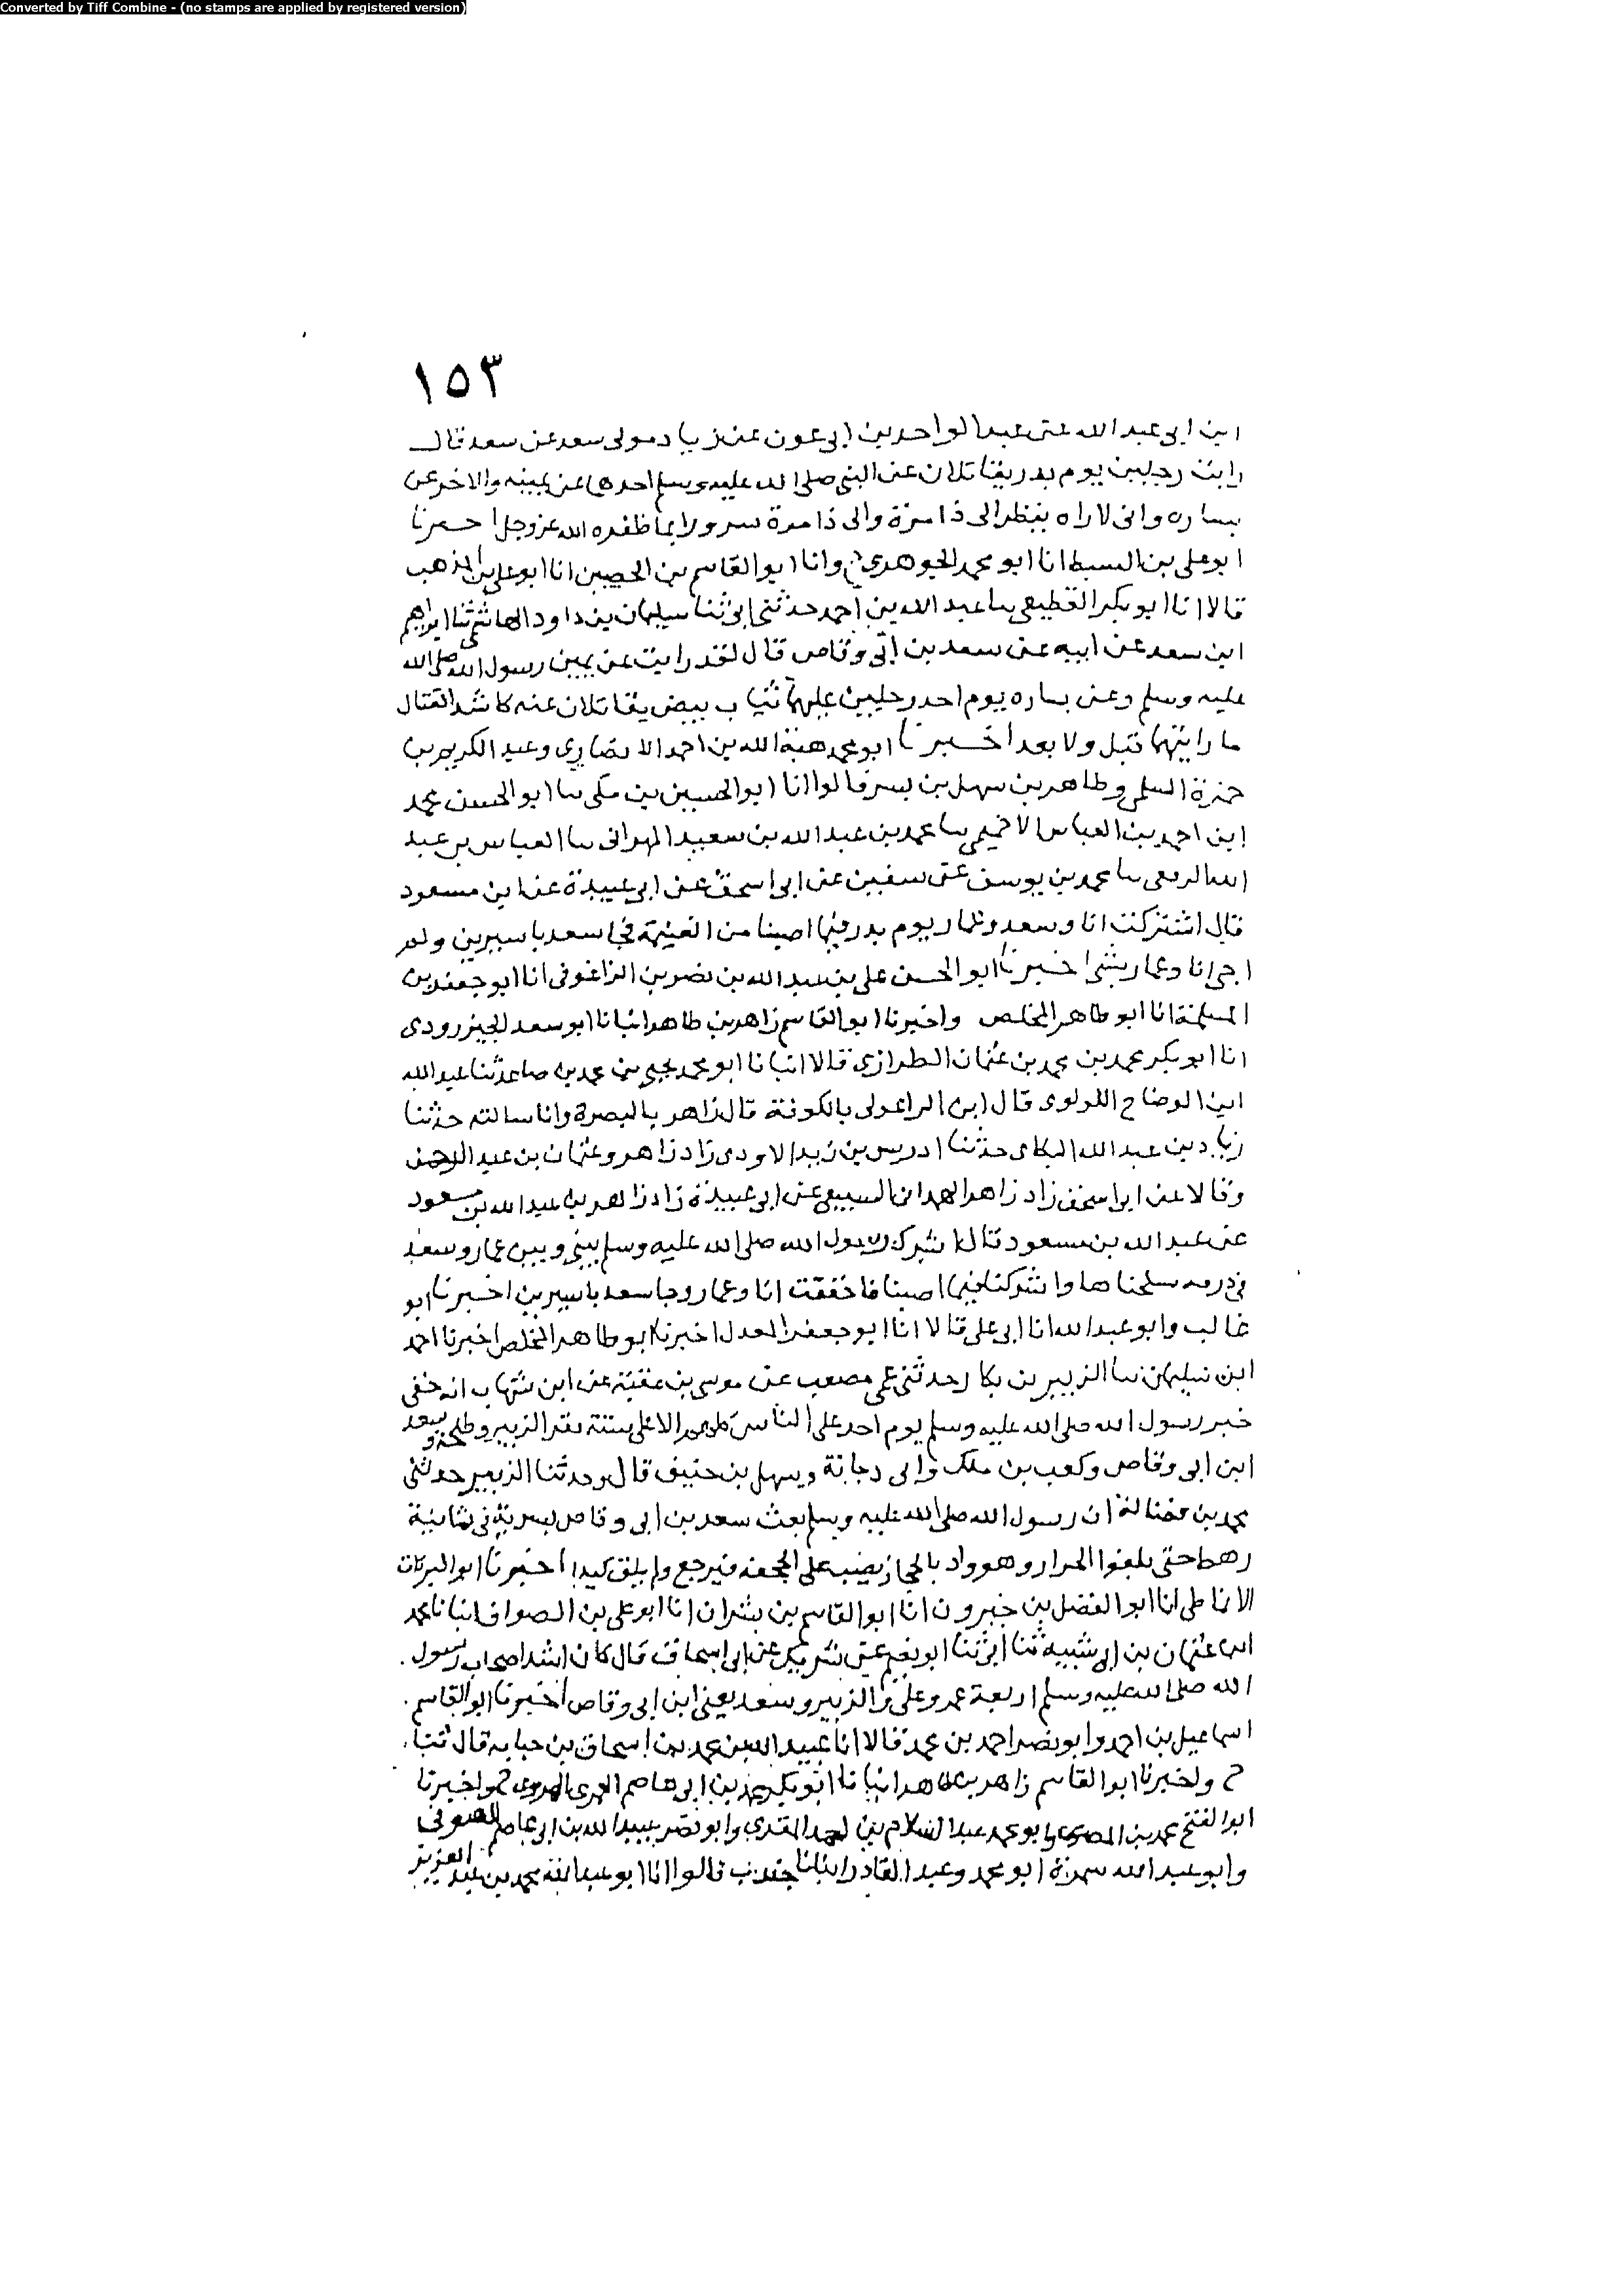 Converted by Tiff Combine - (no stamps are applied by registered version)
١٥٣
ابن ابي عبد الله عن عبد الواحد بن ابي عون عن زياد مولى سعد عن سعد قال
رايت رجلين يوم بدر يقاتلان عن النبي صلى الله عليه وسلم احدهما عن يمينه والاخر عن
يساره واني لاراه ينظر الى ذا مرة والى ذا مرة سرورا بما ظفره الله عزوجل اخبرنا
ابو على بن السبط انا ابو محمد الجوهري ح وانا ابو القاسم بن الحصين انا ابو على بن المذهب
قالا انا ابو بكر القطيعي نا عبد الله بن احمد حدثني ابي ثنا سليمان بن داود الهاشمي ثنا ابراهيم
ابن سعد عن ابيه عن سعد بن ابي وقاص قال لقد رايت عن يمين رسول الله صلى الله
عليه وسلم وعن يساره يوم احد رجلين عليهما ثياب بيض يقاتلان عنه كاشد القتال
ما رايتهما قبل ولا بعد اخبرنا ابو محمد هبة الله بن احمد الانصاري وعبد الكريم بن
حمزة السلمي وطاهر بن سهل بن بسر قالوا انا ابو الحسين بن مكي نا ابو الحسن محمد
ابن احمد بن العباس الاخميمي نا محمد بن عبد الله بن سعيد المهراني نا العباس بن عبد
الله نا محمد بن يوسف عن سفين عن ابي اسحق عن ابي عبيدة عن ابن مسعود
قال اشتركت انا وسعد وعمار يوم بدر فيما اصبنا من الغنيمة فجا سعد باسيرين ولم
اجي انا وعمار بشي اخبرنا ابو الحسن على بن عبيد الله بن نصر بن الزاغوني انا ابو جعفر بن
المسلمة انا ابو طاهر المخلص واخبرنا ابو القاسم زاهر بن طاهر انبانا ابو سعد الجنزرودي
انا ابو بكر محمد بن محمد بن عثمان الطرازي قالا انبانا ابو محمد يحيى بن محمد بن صاعد ثنا عبد الله
ابن الوضاح اللولوي قال ابن الزاغوني بالكوفة قال زاهر بالبصرة وانا سالته حدثنا
زياد بن عبد الله البكاي حدثنا ادريس بن زيد الاودي زاد زاهر وعثمان بن عبد الرحمن
وقالا عن ابي اسحق زاد زاهر الهمداني السبيعي عن ابي عبيدة زاد زاهر بن عبد الله بن مسعود
عن عبد الله بن مسعود قال اشرك رسول الله صلى الله عليه وسلم بيني وبين عمار وسعد
في سلحناها واشتركنا فيما اصبنا فاخفقت انا وعمار وجا سعد باسيرين اخبرنا ابو
غالب وابو عبد الله انا ابي على قالا انا ابو جعفر المعدل اخبرنا ابو طاهر المخلص اخبرنا احمد
ابن سليمان نا الزبير بن بكار حدثني عمي مصعب عن موسى بن عقبة عن ابن شهاب انه خفي
خبر رسول الله صلى الله عليه وسلم يوم احد على الناس كلهم الا على ستة نفر الزبير وطلحة وسعد
ابن ابي وقاص وكعب بن ملك وابي دجانة وسهل بن حنيف قال وحدثنا الزبير حدثني
محمد بن فضالة ان رسول الله صلى الله عليه وسلم بعث سعد بن ابي وقاص بسرية في ثمانية
رهط حتى بلغوا الخرار وهو واد بالحجاز يصب على الجحفة فيرجع ولم يلق كيدا اخبرنا ابو البركات
الانماطي انا ابو الفضل بن خيرون انا ابو القاسم بن بشران انا ابو على بن الصواف انبانا محمد
ابن عثمان بن ابي شيبة ثنا ابي ثنا ابو نعيم عن شريك عن ابي اسحاق قال كان اشد اصحاب رسول
الله صلى الله عليه وسلم اربعة عمر وعلي والزبير وسعد يعني ابن ابي وقاص اخبرنا ابو القاسم
اسماعيل بن احمد وابو نصر احمد بن محمد قالا انا عبيد الله بن محمد بن اسحاق بن حبابه قال ثنا
ح واخبرنا ابو القاسم زاهر بن طاهر انبانا ابو بكر محمد بن ابي عاصم الهروي ح واخبرنا
ابو الفتح محمد بن وابو محمد عبد السلام بن احمد وابو نصر عبيد الله بن ابي عاصم الصوفي
وابو عبد الله سمرة ابو محمد وعبد القادر ابنانا جندب قالوا انا ابو عبد الله محمد بن عبد العزيز